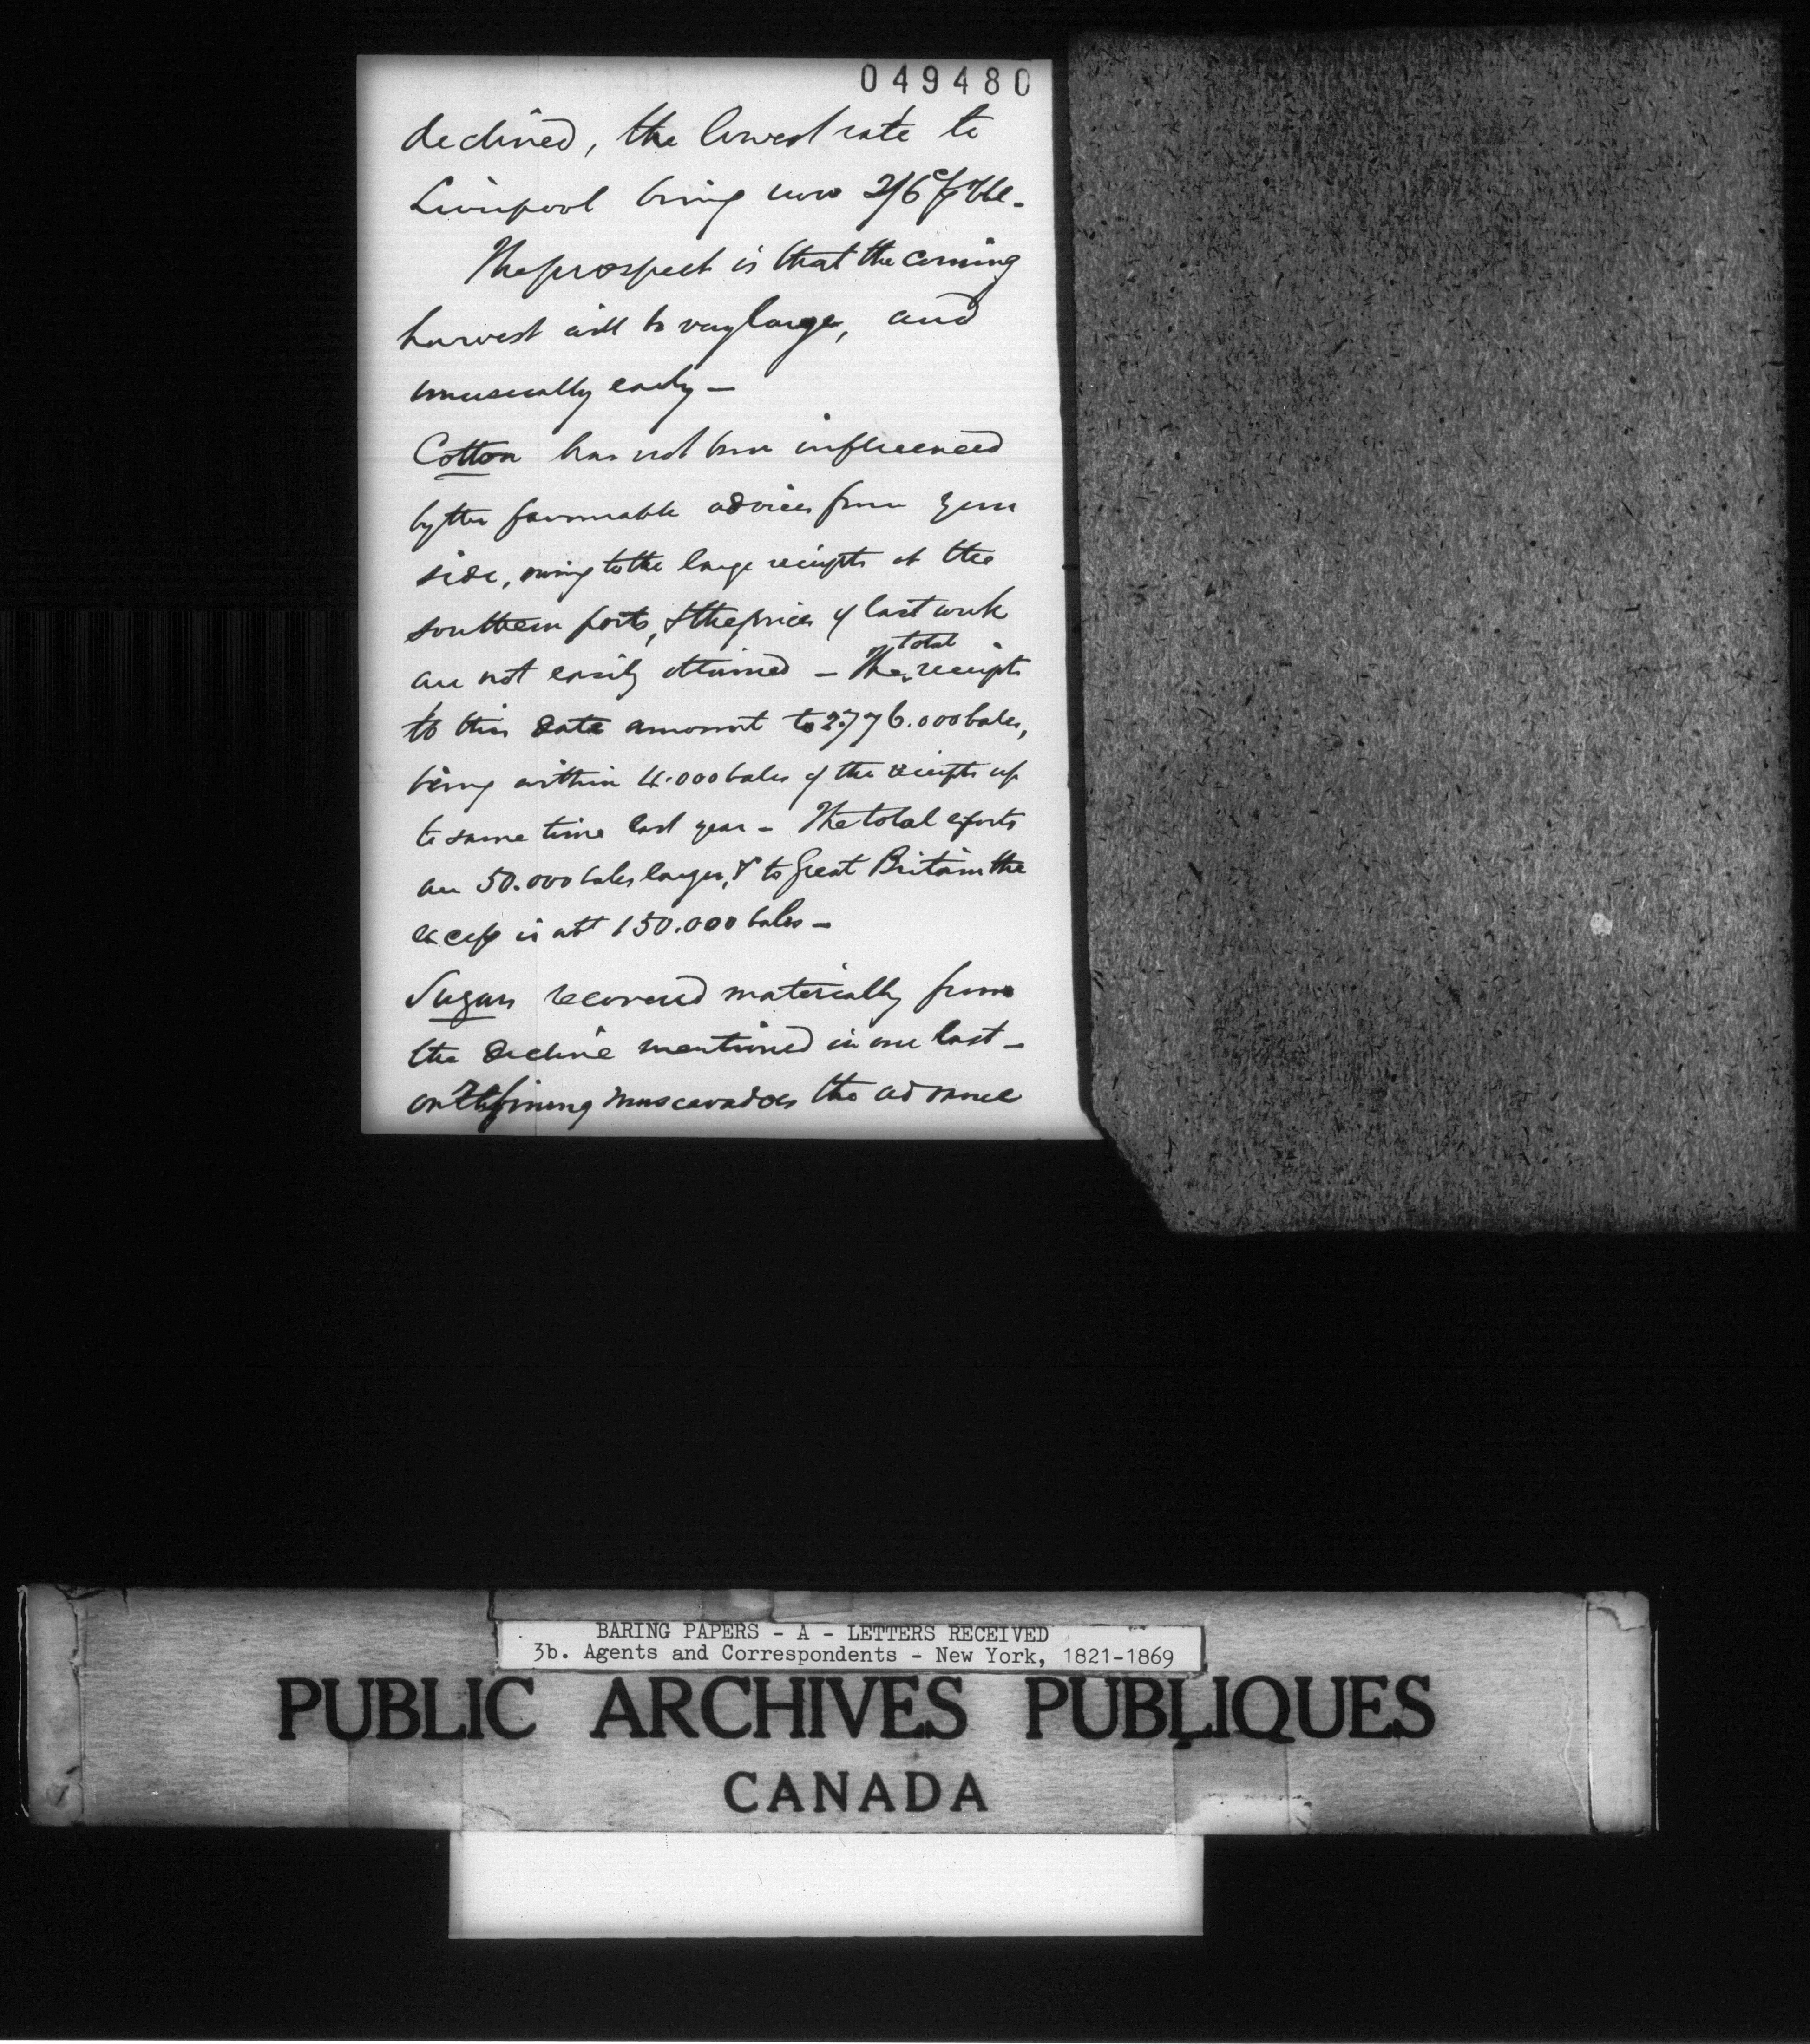 049480
declined, the lowest rate to
Liverpool being now 2/6 bbl -
The prospect is that the coming
harvest will be very large, and
unusually early -
Cotton has not been influenced
by the favourable advices from your
side, owing to the large receipts at the
southern ports, & the prices of last week
are not easily obtained - The total receipts
to this date amount to 2.776.000 bales,
being within 4.000 bales of the receipts up
to same time last year - The total exports
are 50.000 bales larger, & to Great Britain the
excess is abt 150.000 bales -
Sugars recovered materially from
the decline mentioned in our last -
on refining muscavadoes the advance
BARING PAPERS - A - LETTERS RECEIVED
3b. Agents and Correspondents - New York, 1821-1869
PUBLIC ARCHIVES PUBLIQUES
CANADA